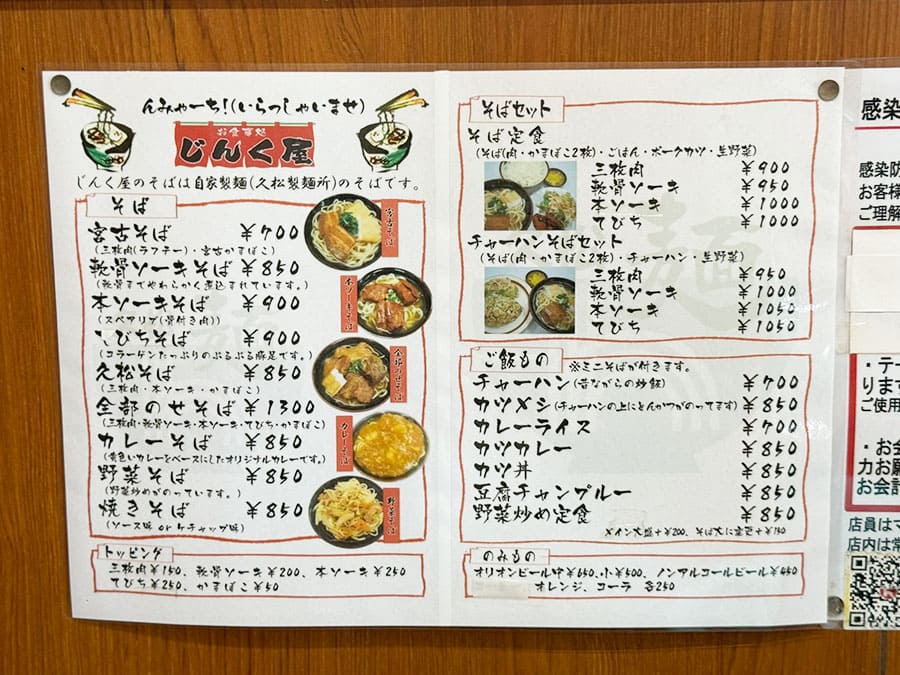 んみゃーち!(いらっしゃいませ)
お食事処
じんく屋
じんく屋のそばは自家製麺(久松製麺所)のそばです。
そば
宮古そば ¥700
(三枚肉(ラフテー)・宮古かまぼこ)
軟骨ソーキそば ¥850
(軟骨までやわらかく煮込まれています。)
本ソーキそば ¥900
(スペアリブ(骨付き肉))
てびちそば ¥900
(コラーゲンたっぷりのぷるぷる豚足です。)
久松そば ¥850
(三枚肉・本ソーキ・かまぼこ)
全部のせそば ¥1300
(三枚肉・軟骨ソーキ・本ソーキ・てびち・かまぼこ)
カレーそば ¥850
(黄色いカレーをベースにしたオリジナルカレーです。)
野菜そば ¥850
(野菜炒めがのっています。)
焼きそば ¥850
(ソース味 or ケチャップ味)
宮古そば
本ソーキそば
全部のせそば
カレーそば
野菜そば
トッピング
三枚肉¥150、軟骨ソーキ¥200、本ソーキ¥250
てびち¥250、かまぼこ¥50
そばセット
そば定食
(そば(肉・かまぼこ2枚)・ごはん・ポークカツ・生野菜)
三枚肉 ¥900
軟骨ソーキ ¥950
本ソーキ ¥1000
てびち ¥1000
チャーハンそばセット
(そば(肉・かまぼこ2枚)・チャーハン・生野菜)
三枚肉 ¥950
軟骨ソーキ ¥1000
本ソーキ ¥1050
てびち ¥1050
ご飯もの
※ミニそばが付きます。
チャーハン(昔ながらの炒飯) ¥700
カツメシ(チャーハンの上にとんかつがのってます) ¥850
カレーライス ¥700
カツカレー ¥850
カツ丼 ¥850
豆腐チャンプルー ¥850
野菜炒め定食 ¥850
メイン大盛+¥200、そば大に変更+¥150
のみもの
オリオンビール中¥650、小¥500、ノンアルコールビール¥450
オレンジ、コーラ 各250
感染
感染防
お客様
ご理解
・テー
ります
ご使用
・お会
力お願
お会計
店員はマ
店内は常